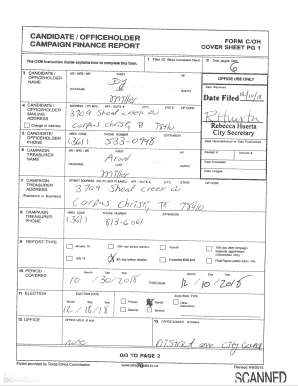 CANDIDATE / OFFICEHOLDER
CAMPAIGN FINANCE REPORT
FORM C/OH
COVER SHEET PG 1
The C/OH Instruction Guide explains how to complete this form.
1 Filer ID
2 Total pages filed:
6
3 CANDIDATE / OFFICEHOLDER NAME
MS / MRS / MR FIRST MI
Joy
NICKNAME LAST SUFFIX
Miller
OFFICE USE ONLY
Date Received
Date Filed 12/10/18
RHuerta
Rebecca Huerta
City Secretary
4 CANDIDATE / OFFICEHOLDER MAILING ADDRESS
Change of Address
ADDRESS / PO BOX; APT / SUITE #; CITY; STATE; ZIP CODE
3709 Shoal creek
Corpus christi, TX 78410
5 CANDIDATE / OFFICEHOLDER PHONE
AREA CODE PHONE NUMBER EXTENSION
(361) 533-0948
Date Hand-delivered or Date Postmarked
Receipt # Amount $
Date Processed
Date Imaged
6 CAMPAIGN TREASURER NAME
MS / MRS / MR FIRST MI
Aron
NICKNAME LAST SUFFIX
Miller
7 CAMPAIGN TREASURER ADDRESS
(Residence or Business)
STREET ADDRESS (NO PO BOX PLEASE); APT / SUITE #; CITY; STATE; ZIP CODE
3709 Shoal creek
Corpus christi, TX 78410
8 CAMPAIGN TREASURER PHONE
AREA CODE PHONE NUMBER EXTENSION
(361) 813-6061
9 REPORT TYPE
January 15
30th day before election
Runoff
15th day after campaign treasurer appointment
(Officeholder Only)
July 15
8th day before election
Exceeded $500 limit
10 PERIOD COVERED
Month Day Year
10/30/2018
THROUGH
12/10/2018
11 ELECTION
ELECTION DATE
Month Day Year
12/18/18
ELECTION TYPE
Primary
Runoff
Other
Description
General
Special
12 OFFICE
OFFICE HELD (if any)
none
13 OFFICE SOUGHT (if known)
District one City
GO TO PAGE 2
Forms provided by Texas Ethics Commission
www.ethics.state.tx.us
SCANNED